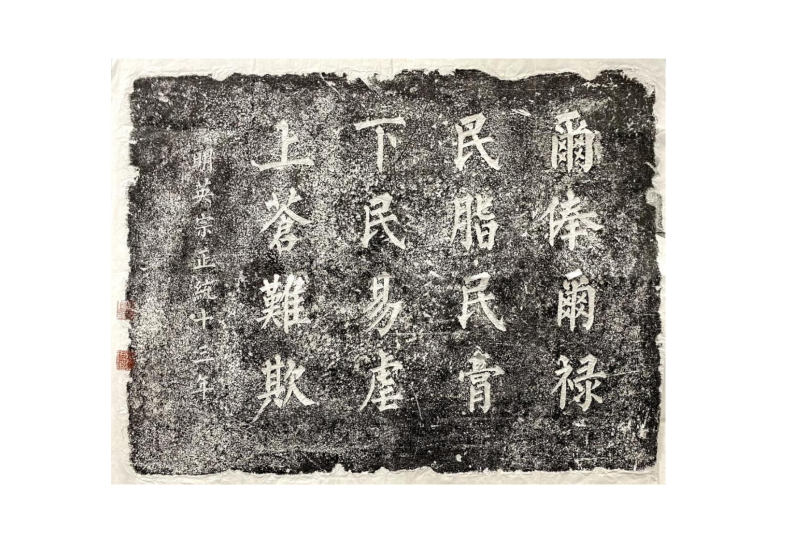 爾俸爾禄
民脂民膏
下民易虐
上蒼難欺
明英宗正統十二年